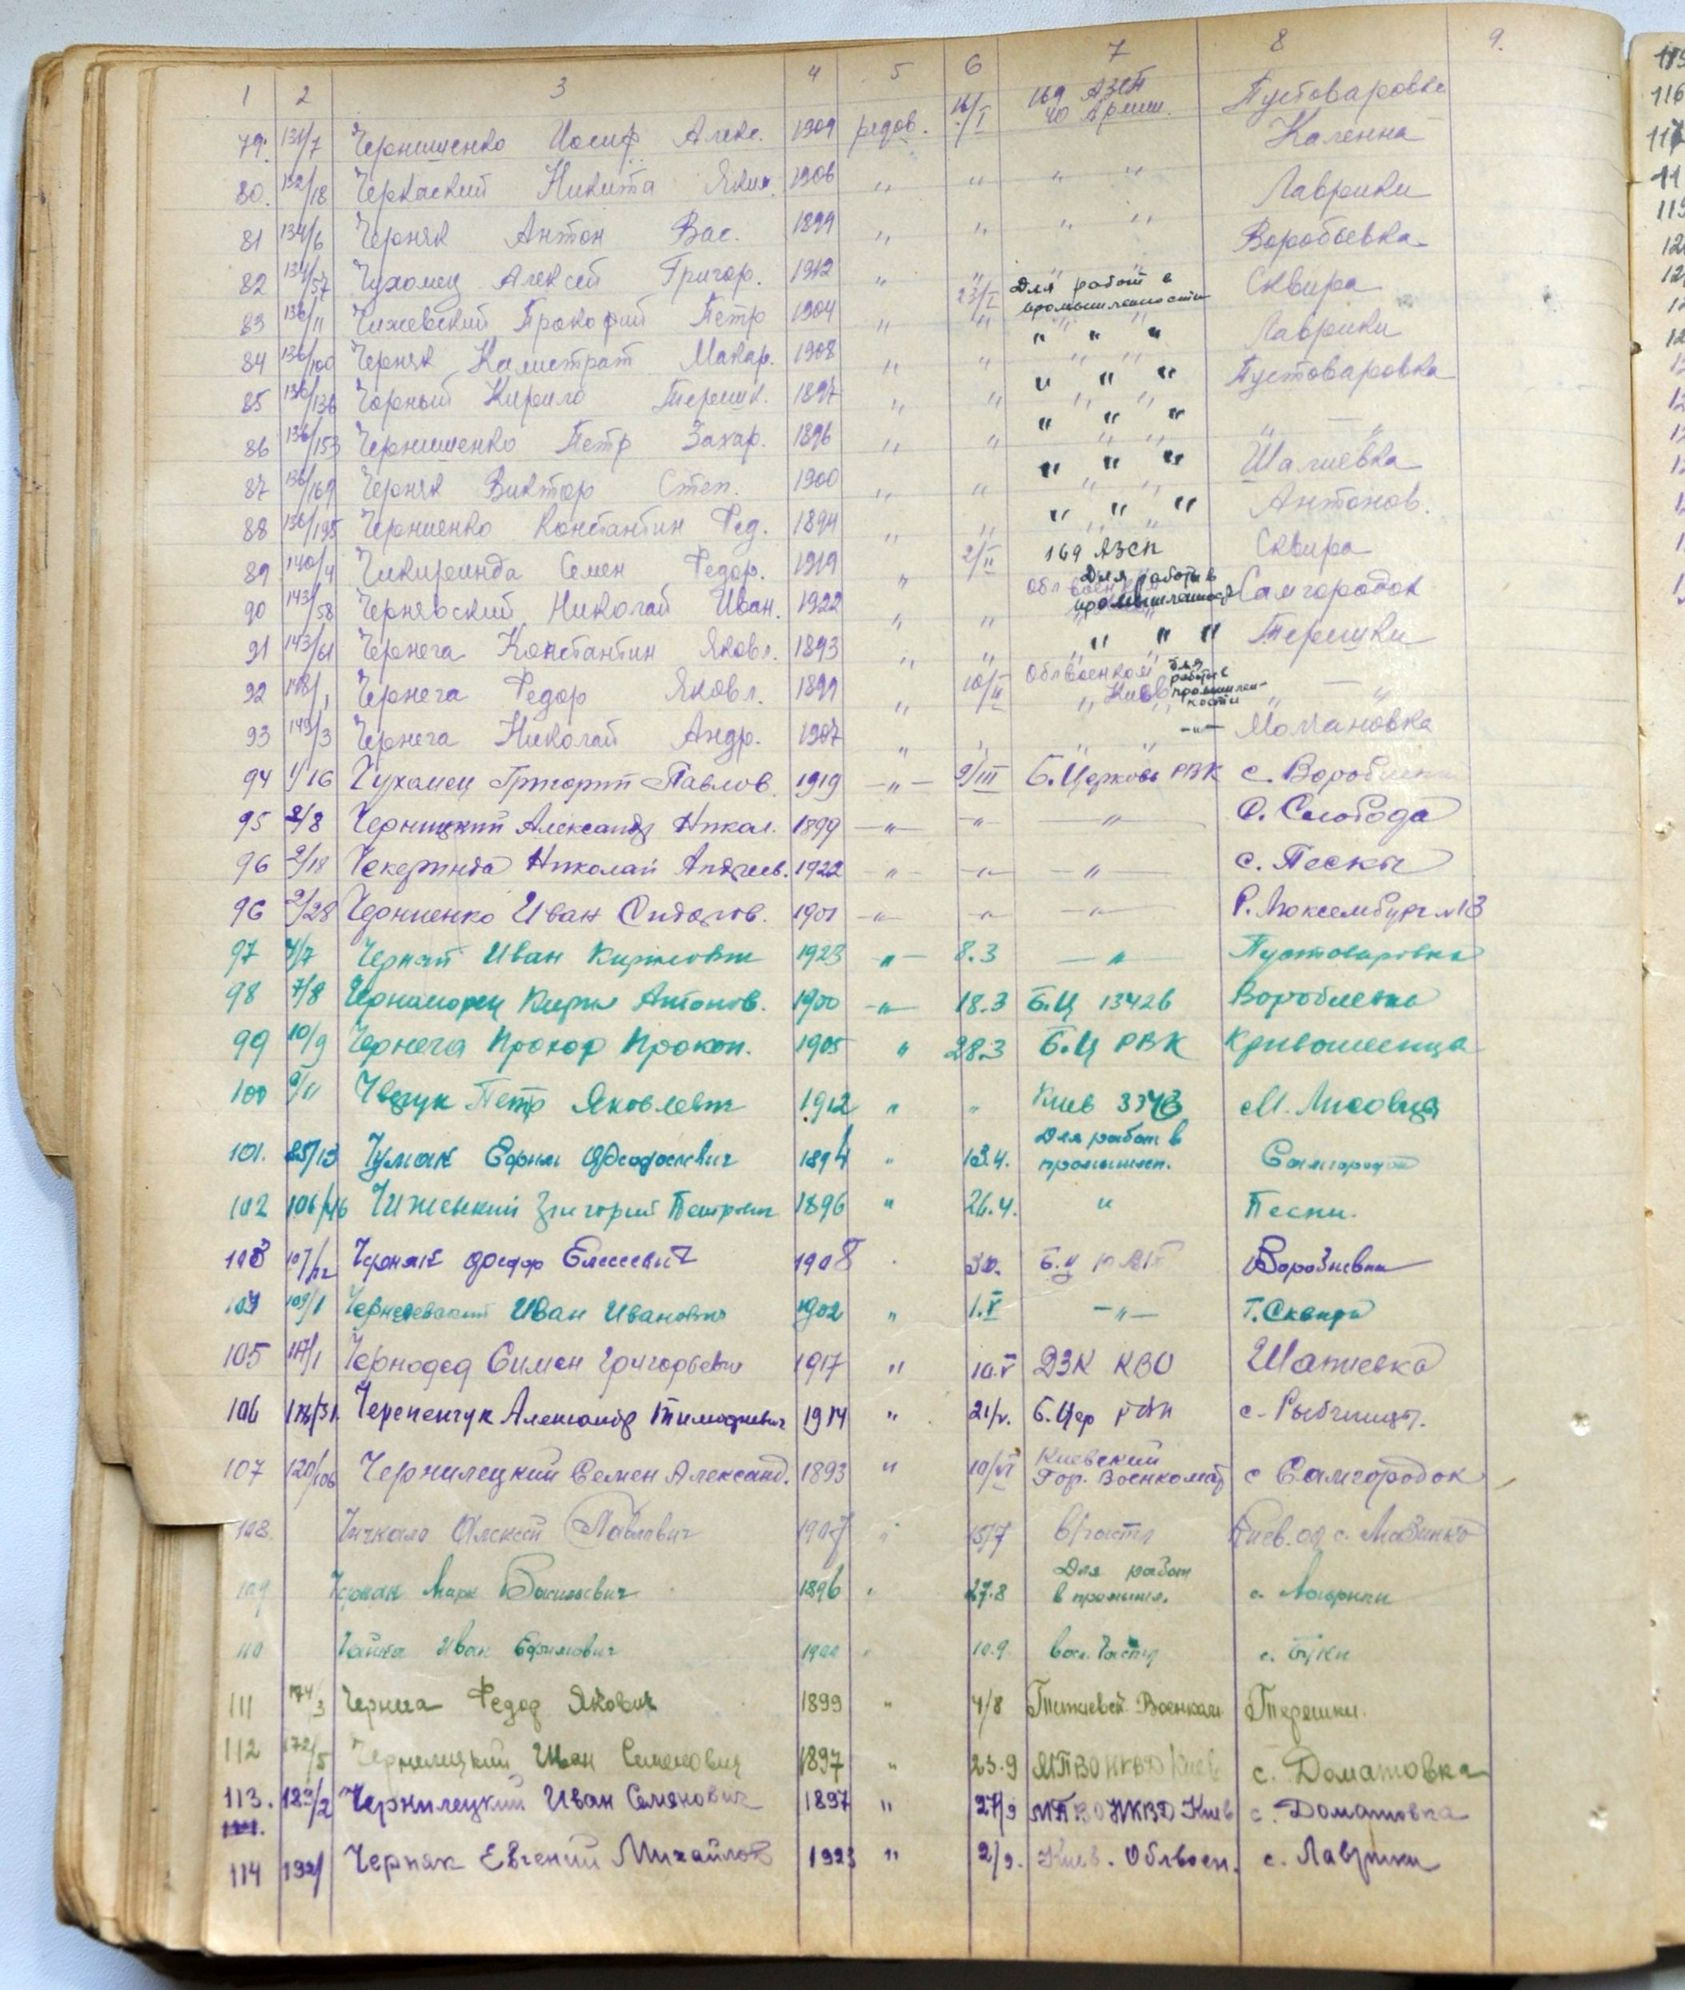 1 2 3 4 5 6 7 8 9.
79. 131/7 Чернишенко Иосиф Алекс. 1909 рядов. 16/I 169 АЗСП 40 Армии. Пустоваровка
80. 132/18 Черкаский Никита Яким. 1906 " " " " Каленна
81 134/6 Черняк Антон Вас. 1899 " " " " Лаврики
82 134/57 Чухомец Алексей Григор. 1912 " " " " Воробьевка
83 136/11 Чижевский Прокофий Петр 1904 " 23/I Для работ в промышленности Сквира
84 136/100 Черняк Калистрат Макар. 1908 " " " " " Лаврики
85 136/136 Чорный Кирило Терешк. 1897 " " " " " Пустоваровка
86 136/153 Чернишенко Петр Захар. 1896 " " " " " " — "
87 136/169 Черняк Виктор Степ. 1900 " " " " " Шалиевка
88 136/195 Черниенко Константин Фед. 1894 " " " " " Антонов.
89 140/4 Чикиринда Семен Федор. 1919 " 2/II 169 АЗСП Сквира
90 143/58 Чернявский Николай Иван. 1922 " " Для работы в промышленност Самгородок
91 143/61 Чернега Константин Яковл. 1893 " " " " " Терешки
92 148/1 Чернега Федор Яковл. 1899 " 10/II Облвоенком Киев для работы в промышленности " — "
93 149/3 Чернега Николай Андр. 1907 " " " " —"— Моманёвка
94 1/16 Чухомец Григорий Павлов. 1919 —"— 9/III Б. Церковь РВК с. Вороблевка
95 2/8 Черницкий Александр Никол. 1899 —"— —"— —"— С. Слобода
96 2/18 Чекеринда Николай Андреев. 1922 —"— —"— —"— с. Пески
96 2/28 Черниенко Иван Сидоров. 1901 —"— —"— —"— Р. Люксембург №13
97 4/7 Черныш Иван Кирилович 1923 —"— 8.3 —"— Пустоваровка
98 7/8 Черноморец Кирил Антонов. 1900 —"— 18.3 Б.Ц 13426 Вороблевка
99 10/9 Чернега Прохор Прокоп. 1905 " 28.3 Б.Ц РВК Кривошеинца
100 9/11 Петр Яковлевич 1912 " " Киев М. Лисовця
101. 85/13 Чумак Ефим Феодосиевич 1894 " 13.4. Для работ в промышлен. Самгородок
102 106/46 Чижевский Григорий Петрович 1896 " 26.4. " Пески.
103 107/12 Черняк Федор Елисеевич 1908 30. Б.Ц РВК Воробиевка
104 109/1 Иван Иванович 1902 " 1.V —"— Г. Сквира
105 117/1 Чернодед Симен Григорьевич 1917 " 10.V ДЗК КВО Шалиевка
106 118/31 Черепенчук Александр Тимофиевич 1914 " 21/V. Б.Цер РВК с. Рыбчинцы.
107 120/106 Чернилецкий Семен Александ. 1893 " 10/VI Киевский Гор. Военкомат с Самгородок
108 Чичкало Алексей Павлович 1907 " 15/7 В/части Киев. об с. Мазинко
109 Черняк Марк Васильевич 1896 " 27.8 Для работ в промышл. с. Лаврики
110 Чайка Иван Ефимович 1900 " 10.9. воен. часть с. Буки
111 174/3 Чернега Федор Якович 1899 " 4/8 Тетиевск. Военком Терешки.
112 172/5 Чернилецкий Иван Семенович 1897 " 23.9 МПВО НКВД Киев с. Доматовка
113. 189/2 Чернилецкий Иван Семянович 1897 " 27/9 МПВО НКВД Киев с. Доматовка
114 192/1 Черняк Евгений Михайлов 1923 " 2/9. Киев. Облвоен. с. Лаврики